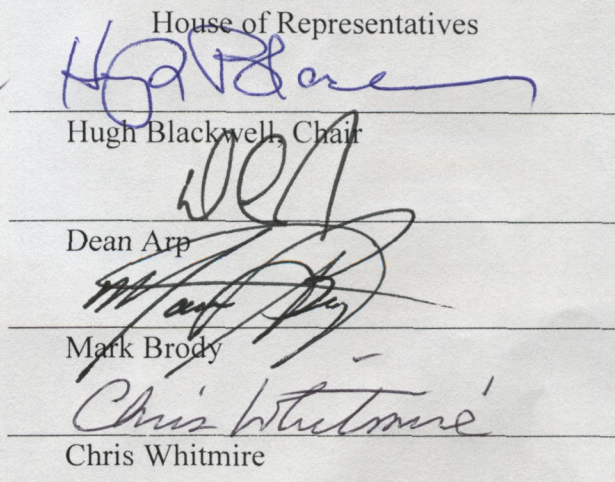 House of Representatives
Hugh Blackwell
Hugh Blackwell, Chair
Dean Arp
Mark Brody
Mark Brody
Chris Whitmire
Chris Whitmire